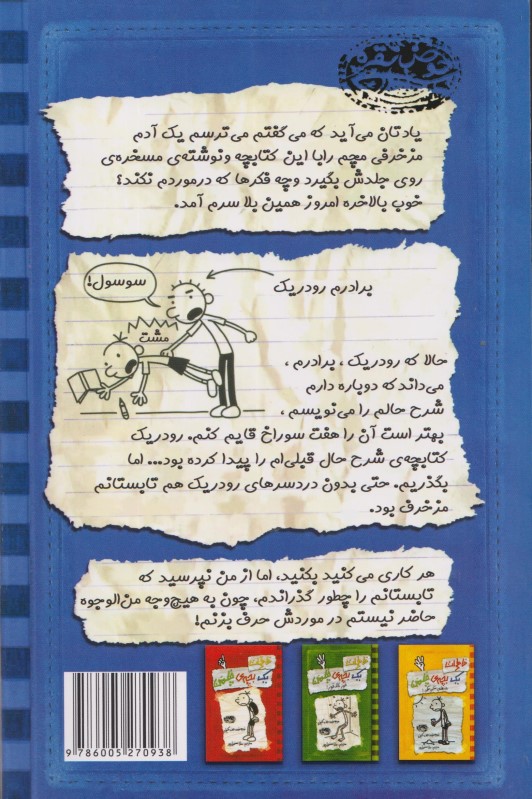 یادتان می‌آید که می‌گفتم می‌ترسم یک آدم
مزخرفی مچم رابا این کتابچه ونوشته‌ی مسخره‌ی
روی جلدش بگیرد وچه فکرها که درموردم نکند؟
خوب بالاخره امروز همین بلا سرم آمد.
سوسول!
برادرم رودریک
مشت
حالا که رودریک ، برادرم ،
می‌داند که دوباره دارم
شرح حالم را می‌نویسم ،
بهتر است آن را هفت سوراخ قایم کنم. رودریک
کتابچه‌ی شرح حال قبلی‌ام را پیدا کرده بود... اما
بگذریم. حتی بدون دردسرهای رودریک هم تابستانم
مزخرف بود.
هر کاری می‌کنید بکنید، اما از من نپرسید که
تابستانم را چطور گذراندم، چون به هیچ‌وجه من‌الوجوه
حاضر نیستم در موردش حرف بزنم!
خاطرات
یک بچه‌ی چلمن
خاطرات
یک بچه‌ی چلمن
خاطرات
یک بچه‌ی چلمن
9 786005 270938